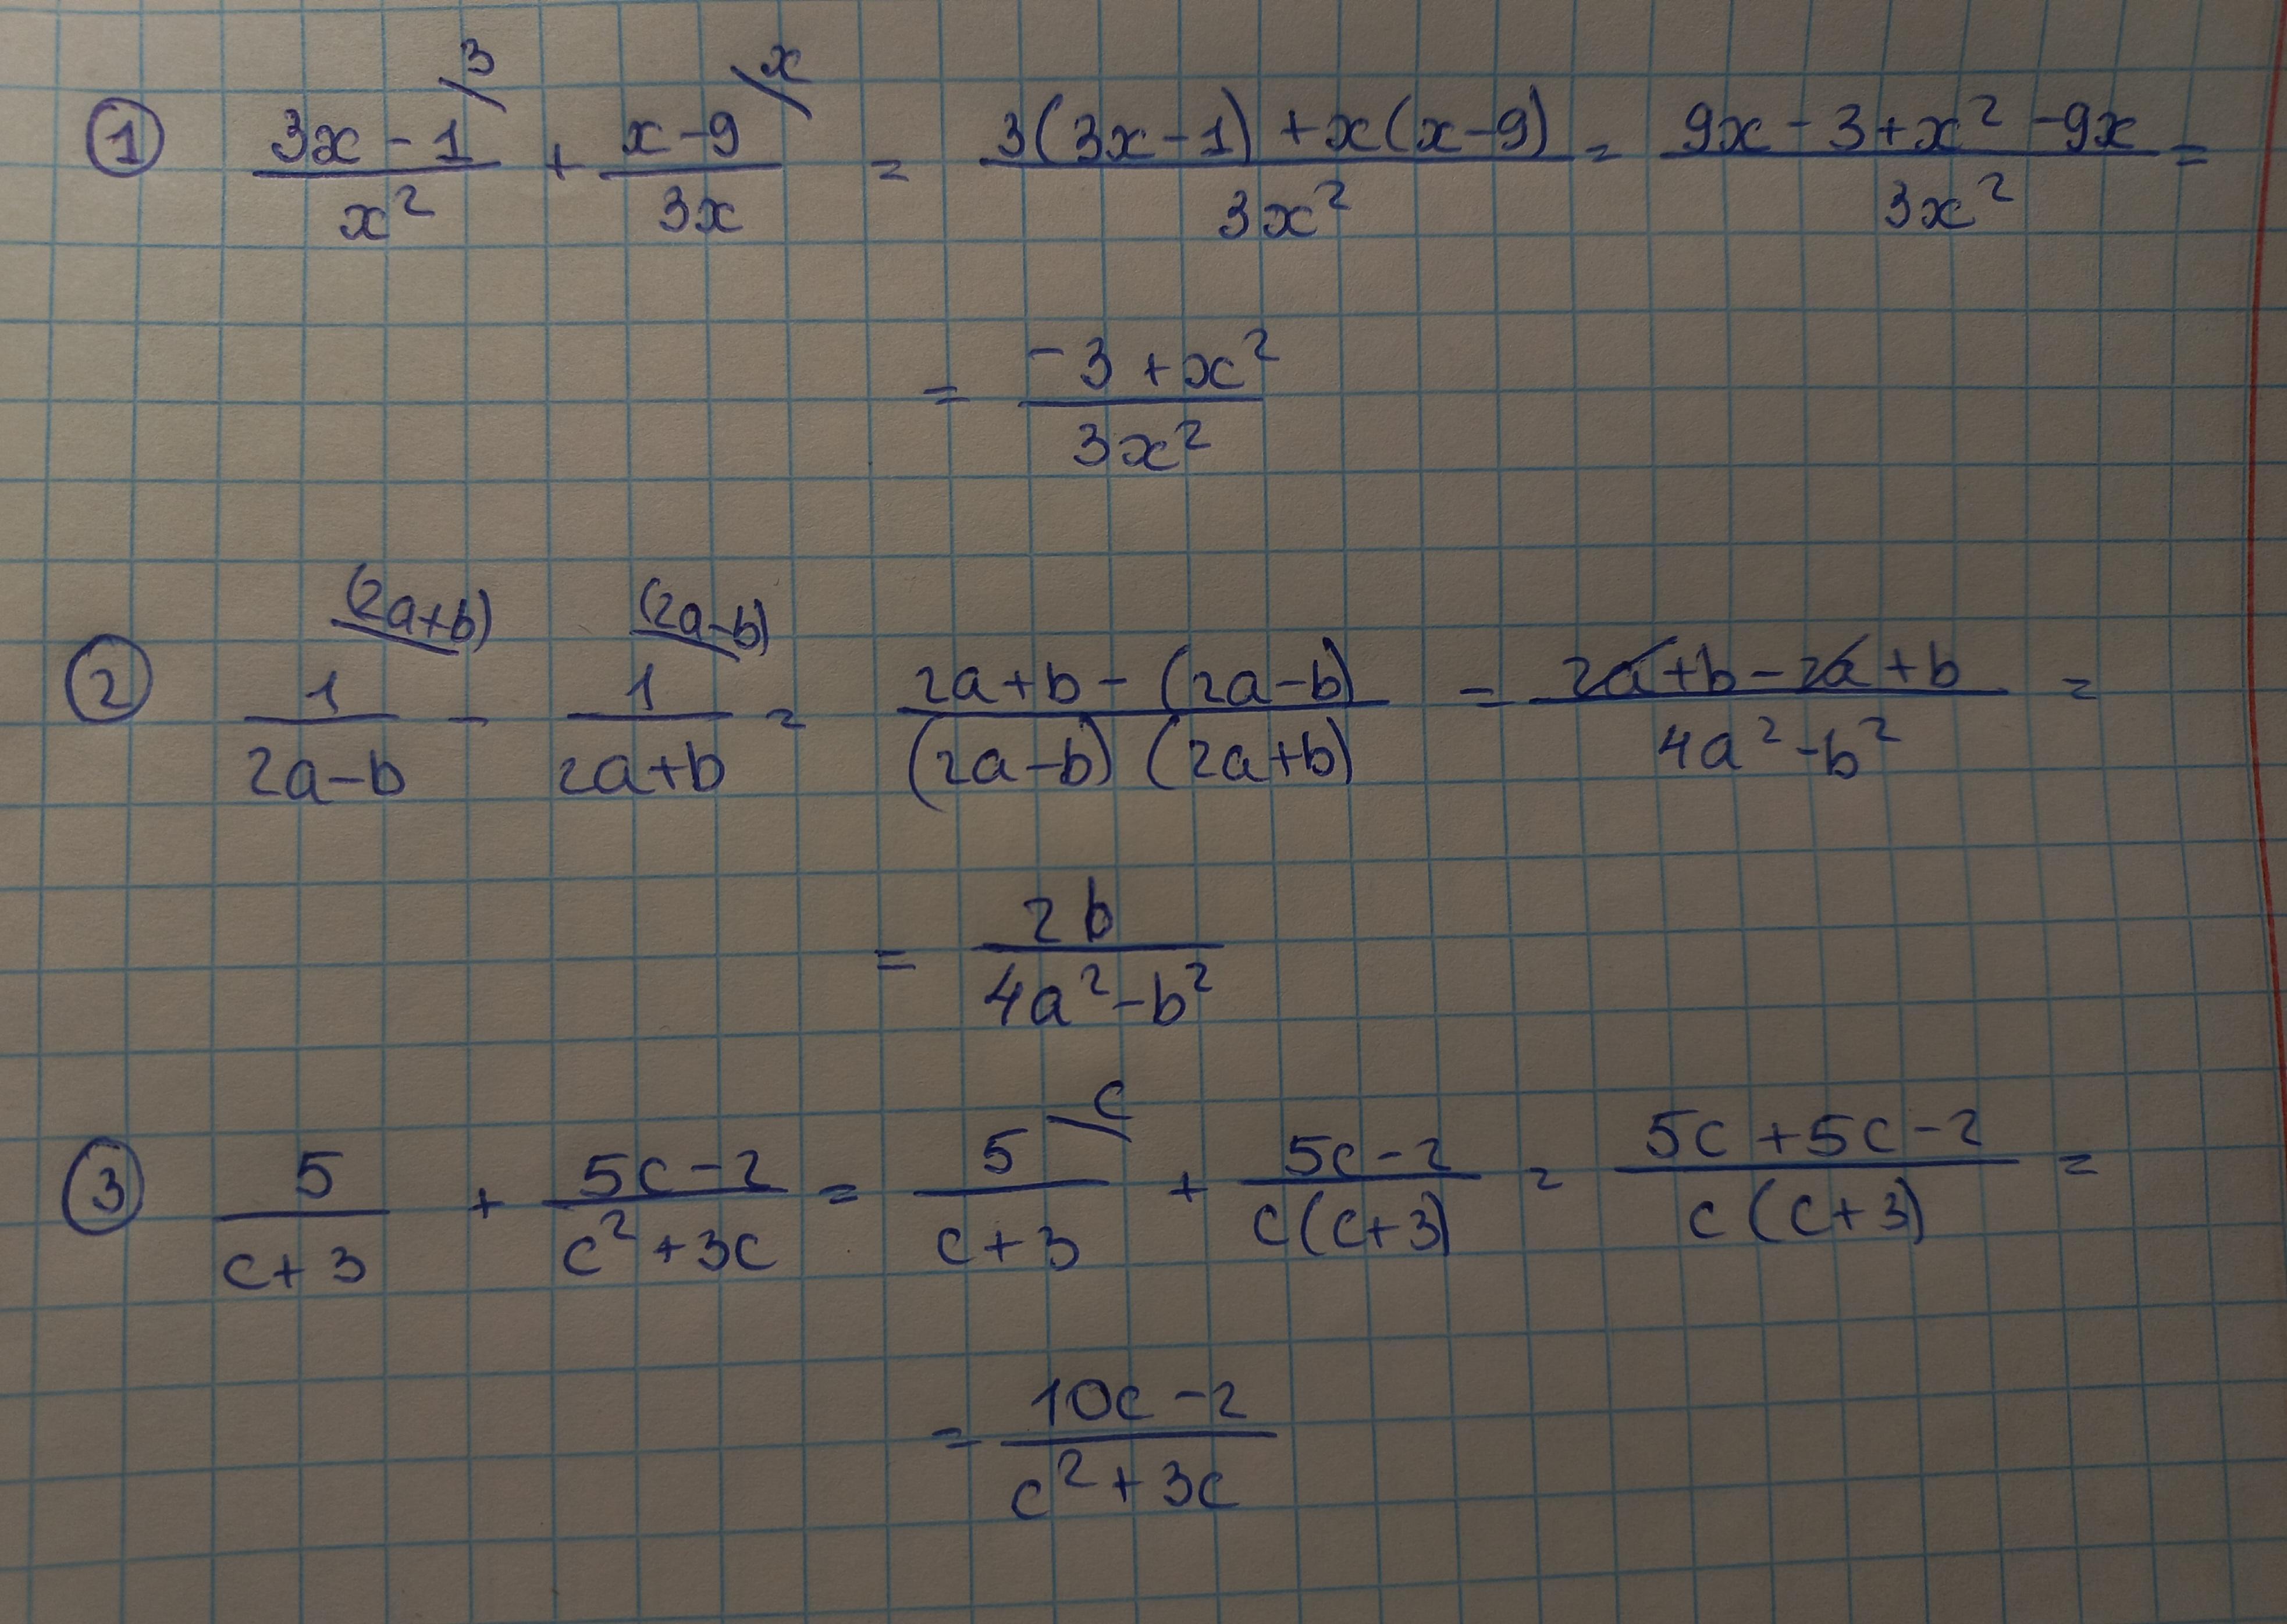 ① (3x-1)/x² \3 + (x-9)/3x \x = (3(3x-1)+x(x-9))/3x² = (9x-3+x²-9x)/3x² =
= (-3+x²)/3x²
② 1/(2a-b) \(2a+b) - 1/(2a+b) \(2a-b) = (2a+b-(2a-b))/((2a-b)(2a+b)) = (2a+b-2a+b)/(4a²-b²) =
= 2b/(4a²-b²)
③ 5/(c+3) + (5c-2)/(c²+3c) = 5/(c+3) \c + (5c-2)/(c(c+3)) = (5c+5c-2)/(c(c+3)) =
= (10c-2)/(c²+3c)